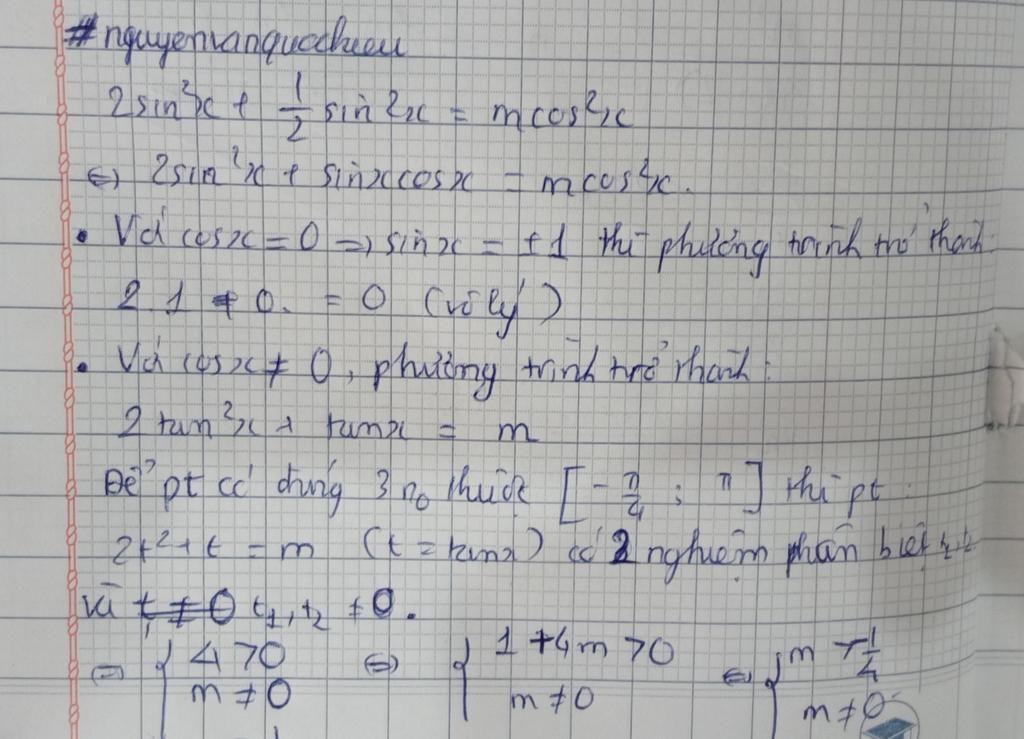 #nguyenvanquocchieu
2sin²x + 1/2 sin2x = mcos²x
⇔ 2sin²x + sinxcosx = mcos²x.
• Với cosx = 0 ⇒ sinx = ±1 thì phương trình trở thành:
2.1 + 0. = 0 (vô lý)
• Với cosx ≠ 0, phương trình trở thành:
2tan²x + tanx = m
Để pt có đúng 3 no thuộc [-π/4 ; π] thì pt:
2t² + t = m (t = tanx) có 2 nghiệm phân biệt
và t₁, t₂ ≠ 0.
⇔ { Δ > 0 ⇔ { 1 + 4m > 0 ⇔ { m > -1/4
m ≠ 0 m ≠ 0 m ≠ 0